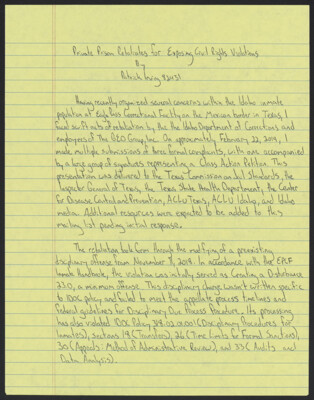 Private Prison Retaliates for Exposing Civil Rights Violations
By
Patrick Irving 82431
Having recently organized several concerns within the Idaho inmate
population at Eagle Pass Correctional Facility on the Mexican border in Texas, I
faced swift acts of retaliation by the the Idaho Department of Corrections and
employees of The GEO Group, Inc. On approximately February 22, 2019, I
made multiple submissions of three formal complaints, with one accompanied
by a large group of signatures representing a Class Action Petition. This
presentation was delivered to the Texas Commission on Jail Standards, the
Inspector General of Texas, the Texas State Health Department, the Center
for Disease Control and Prevention, ACLU Texas, ACLU Idaho, and Idaho
media. Additional resources were expected to be added to this
mailing list pending initial response.
The retaliation took form through the modifying of a preexisting
disciplinary offense from November 9, 2018. In accordance with the EPCF
Inmate Handbook, the violation was initially served as Creating a Disturbance
23.0, a minor offense. This disciplinary charge wasn't written specific
to IDOC policy and failed to meet the appropriate process timelines and
federal guidelines for Disciplinary Due Process Procedure. Its processing
has also violated IDOC Policy 318.02.01.001 (Disciplinary Procedures for
Inmates), sections 18 (Transfers), 26 (Time Limits for Formal Sanctions),
30 (Appeals: Method of Administrative Review), and 33 (Audits and
Data Analysis).